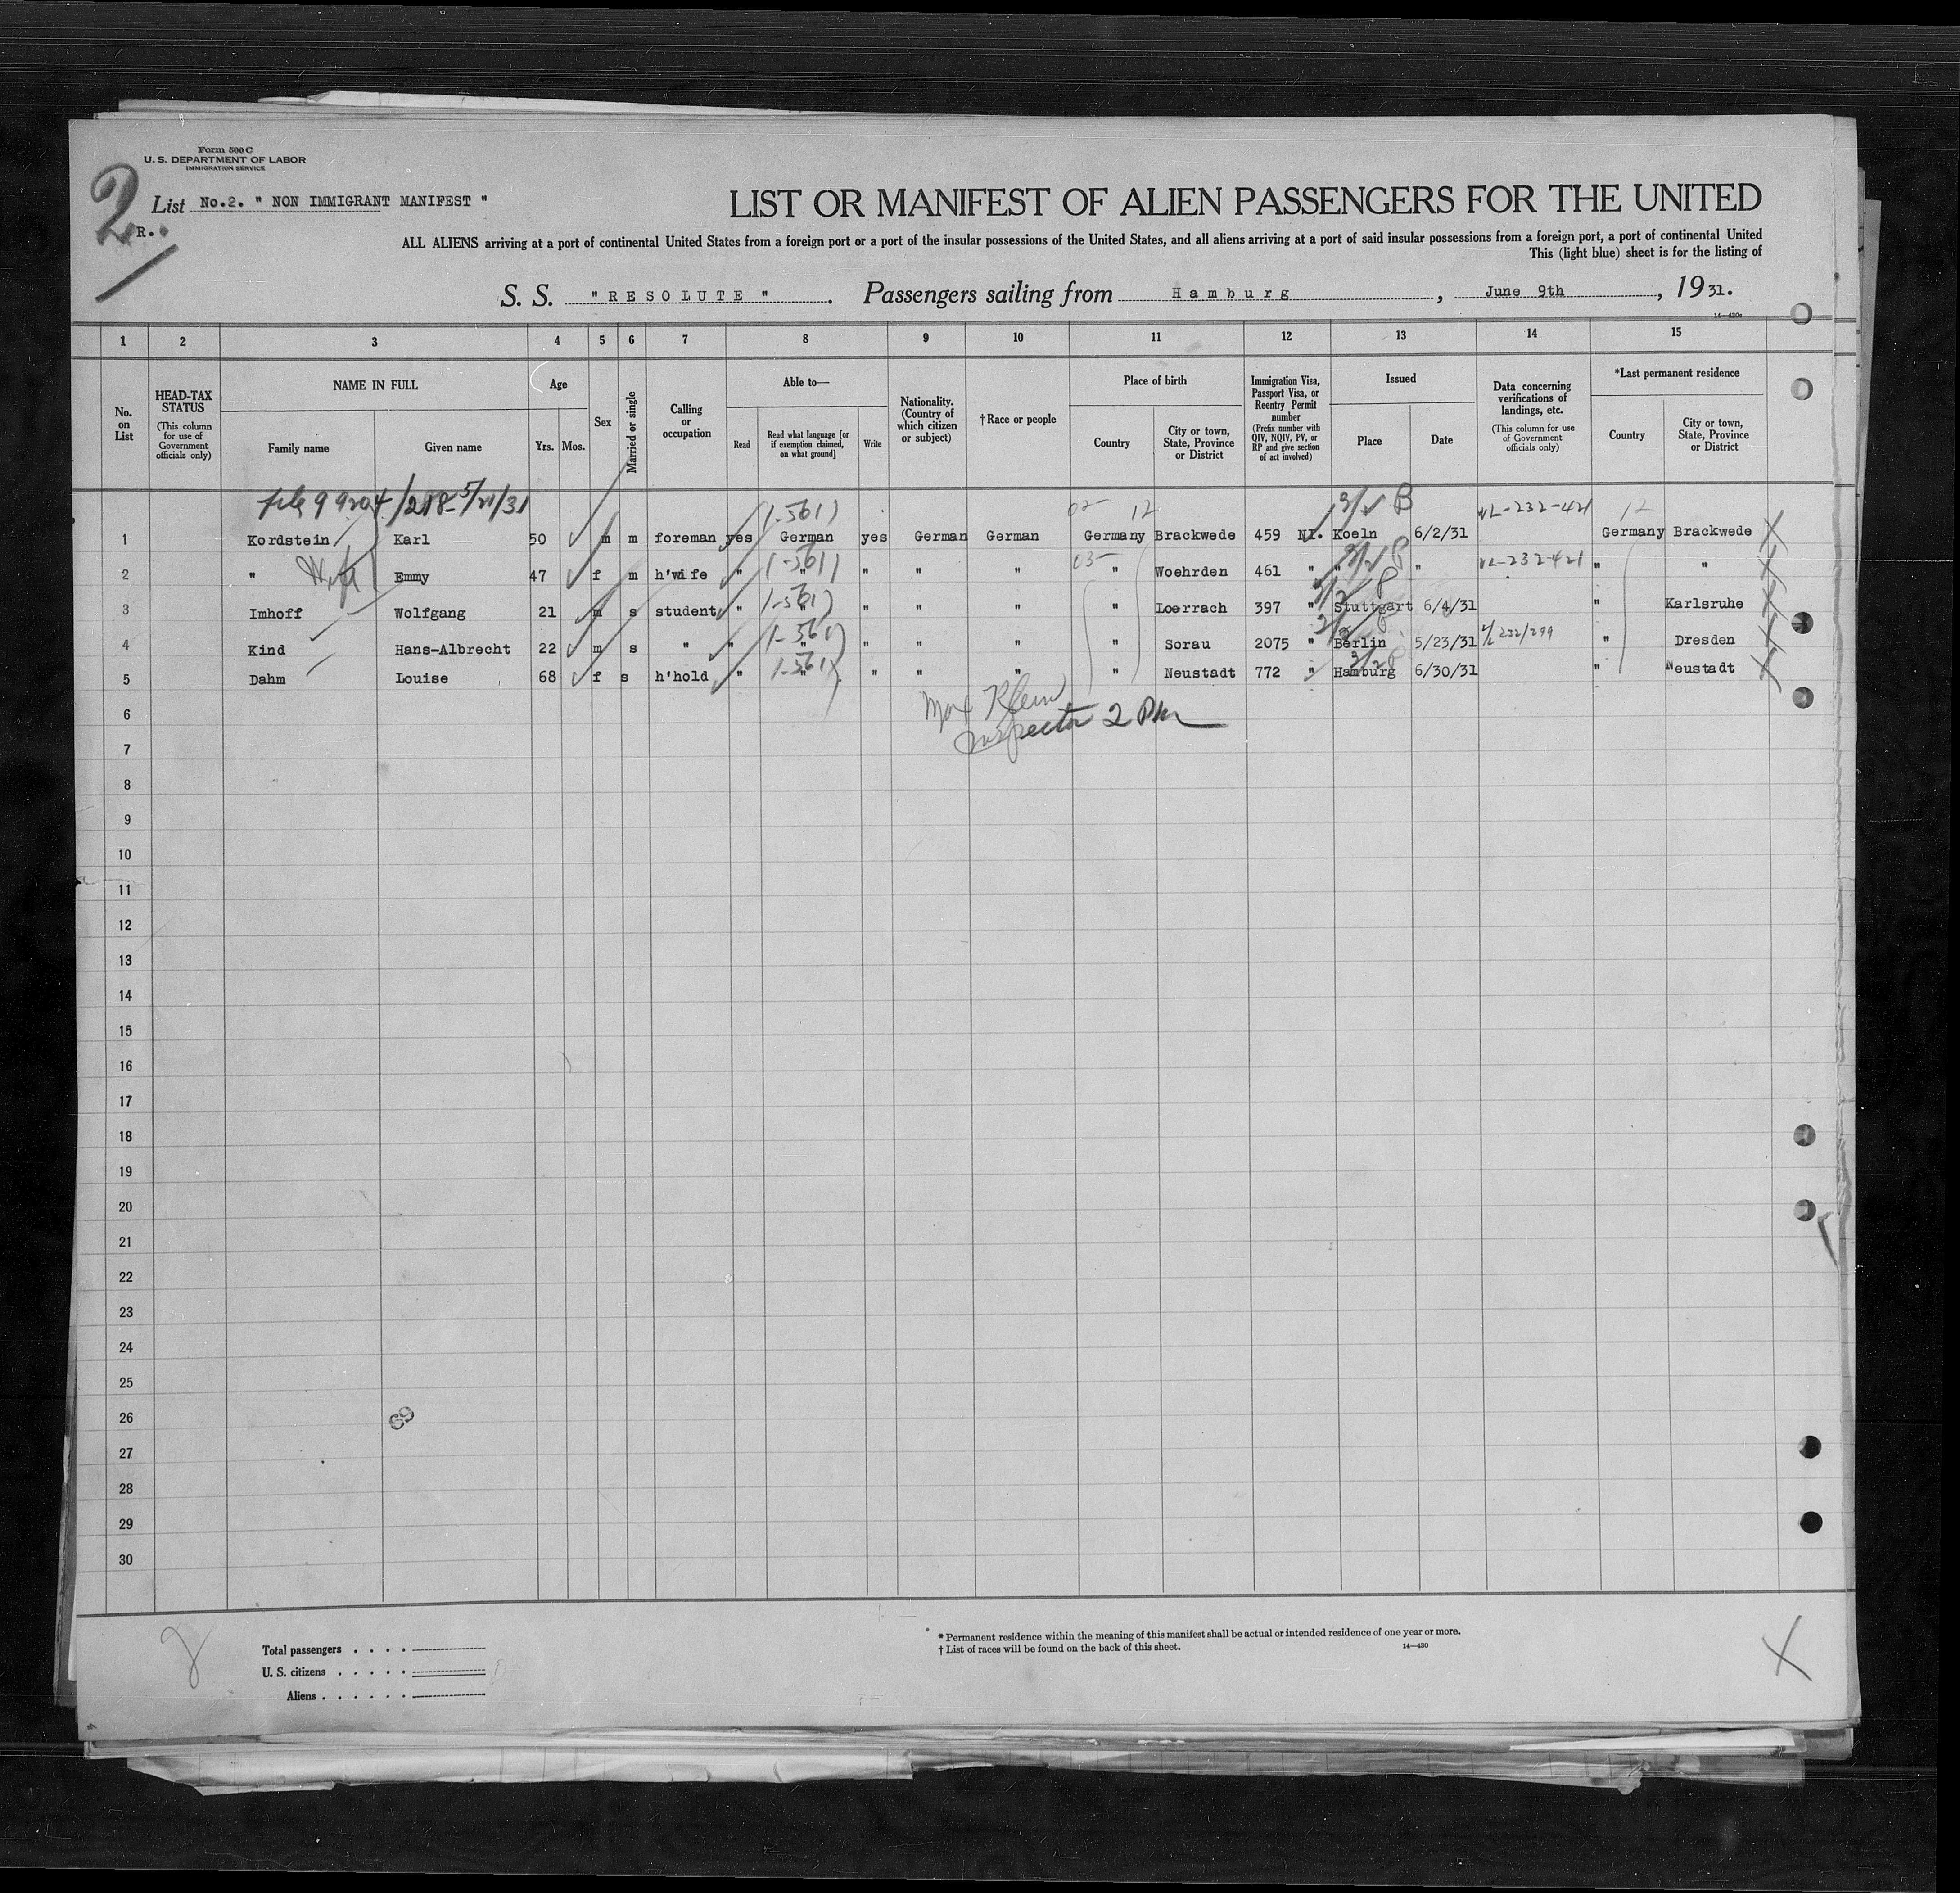 Form 500 C
U. S. DEPARTMENT OF LABOR
IMMIGRATION SERVICE
2
List No.2. " NON IMMIGRANT MANIFEST "
R.
LIST OR MANIFEST OF ALIEN PASSENGERS FOR THE UNITED
ALL ALIENS arriving at a port of continental United States from a foreign port or a port of the insular possessions of the United States, and all aliens arriving at a port of said insular possessions from a foreign port, a port of continental United
This (light blue) sheet is for the listing of
S. S. " R E S O L U T E " . Passengers sailing from H a m b u r g , June 9th , 19 31.
14—430c
1 2 3 4 5 6 7 8 9 10 11 12 13 14 15
No. on List
HEAD-TAX STATUS (This column for use of Government officials only)
NAME IN FULL
Family name Given name
Age
Yrs. Mos.
Sex
Married or single
Calling or occupation
Able to—
Read Read what language [or if exemption claimed, on what ground] Write
Nationality. (Country of which citizen or subject)
†Race or people
Place of birth
Country City or town, State, Province or District
Immigration Visa, Passport Visa, or Reentry Permit number (Prefix number with QIV, NQIV, PV, or RP and give section of act involved)
Issued
Place Date
Data concerning verifications of landings, etc. (This column for use of Government officials only)
*Last permanent residence
Country City or town, State, Province or District
file 99204/218 5/21/31
1 Kordstein Karl 50 m m foreman yes German yes German German Germany Brackwede 459 NI. Koeln 6/2/31 Germany Brackwede
2 " Wife Emmy 47 f m h'wife " " " " " " Woehrden 461 " " " " "
3 Imhoff Wolfgang 21 m s student " " " " " " Loerrach 397 " Stuttgart 6/4/31 " Karlsruhe
4 Kind Hans-Albrecht 22 m s " " " " " " " Sorau 2075 " Berlin 5/23/31 " Dresden
5 Dahm Louise 68 f s h'hold " " " " " " Neustadt 772 " Hamburg 6/30/31 " Neustadt
6
Max Klein
Inspector
7
8
9
10
11
12
13
14
15
16
17
18
19
20
21
22
23
24
25
26
69
27
28
29
30
Total passengers . . . .
U. S. citizens . . . . .
Aliens . . . . . .
* Permanent residence within the meaning of this manifest shall be actual or intended residence of one year or more.
† List of races will be found on the back of this sheet.
14—430